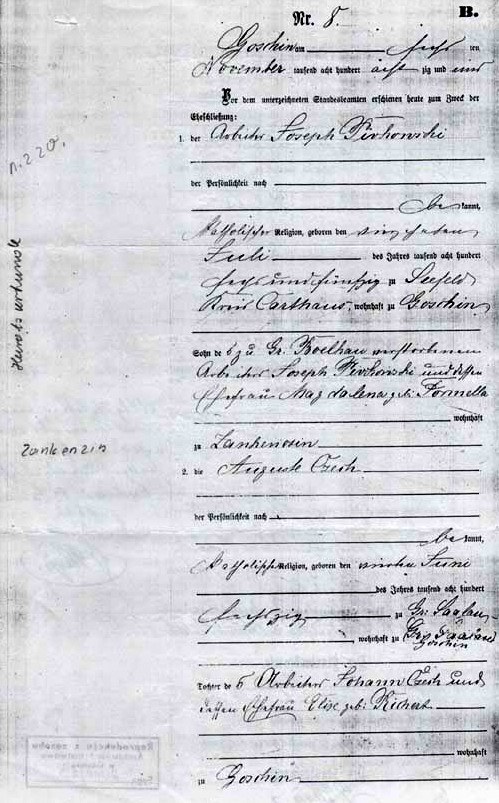 B.
Nr. 8.
Goschin am sechs ten
November tausend acht hundert acht zig und eins
Vor dem unterzeichneten Standesbeamten erschienen heute zum Zweck der
Eheschließung:
1. der Arbeiter Joseph
der Persönlichkeit nach
be kannt,
katholischer Religion, geboren den
Juli des Jahres tausend acht hundert
sechs und fünfzig zu Seefeld
Kreis Carthaus, wohnhaft zu Goschin
Sohn de s zu Gr. Boelkau verstorbenen
Arbeiters Joseph und dessen
Ehefrau Magdalena geb. Formella
wohnhaft
zu Zankenzin
2. die Auguste Czech
der Persönlichkeit nach
be kannt,
katholischer Religion, geboren den Juni
des Jahres tausend acht hundert
sechszig zu Gr. Saalau
, wohnhaft zu Gr. Saalau
Goschin
Tochter de s Arbeiters Johann Czech und
dessen Ehefrau Elise geb. Richert
wohnhaft
zu Goschin
n. 220.
Heiratsurkunde
Zankenzin
Reprodukcja z zasobu